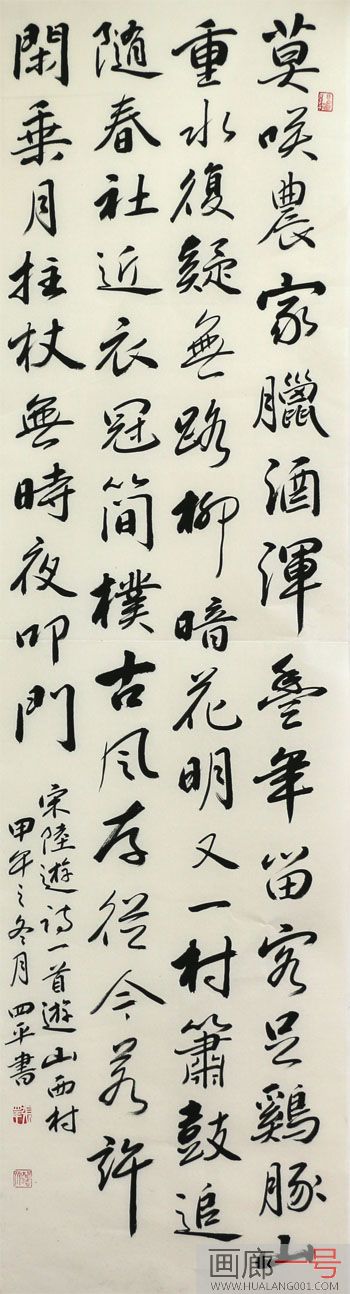 莫咲農家臘酒渾豊年留客足鷄豚山
重水復疑無路柳暗花明又一村簫鼓追
随春社近衣冠簡樸古風存從今若許
閑乗月拄杖無時夜叩門
宋陸遊詩一首遊山西村
甲午之冬月 四平書
画廊一号
WWW.HUALANG001.COM